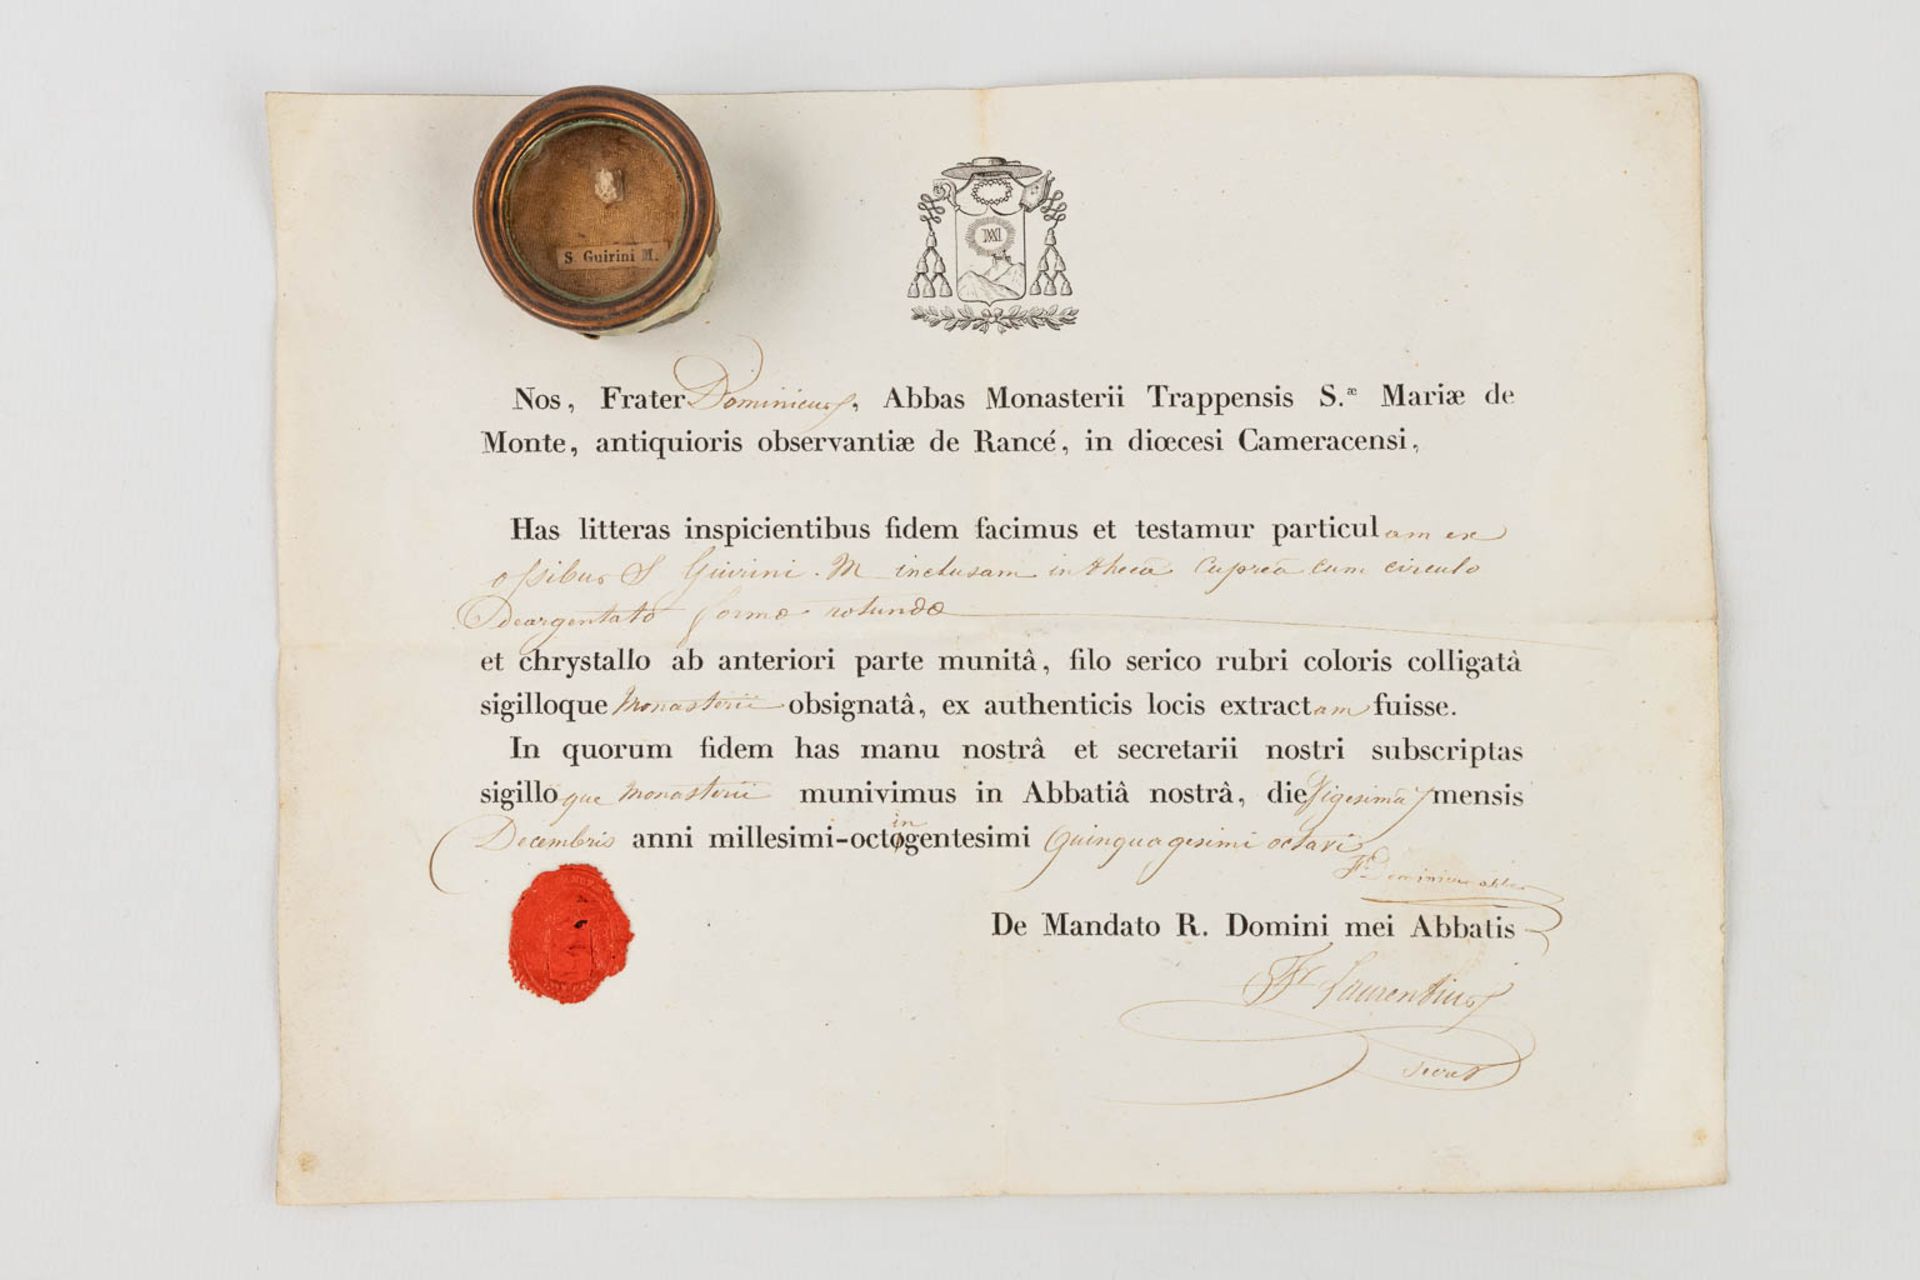 S. Guirini M.
Nos, Frater Dominicus, Abbas Monasterii Trappensis S.æ Mariæ de
Monte, antiquioris observantiæ de Rancé, in diœcesi Cameracensi,
Has litteras inspicientibus fidem facimus et testamur particulam ex
ossibus S Guirini. M inclusam in thecâ cupreâ cum circulo
deargentato formæ rotundæ
et chrystallo ab anteriori parte munitâ, filo serico rubri coloris colligatâ
sigilloque Monasterii obsignatâ, ex authenticis locis extractam fuisse.
In quorum fidem has manu nostrâ et secretarii nostri subscriptas
sigilloque Monasterii munivimus in Abbatiâ nostrâ, die Vigesimâ mensis
in
Decembris anni millesimi-octogentesimi Quinquagesimi octavi
Fr. Dominicus abbas
De Mandato R. Domini mei Abbatis
Fr Laurentius
secret